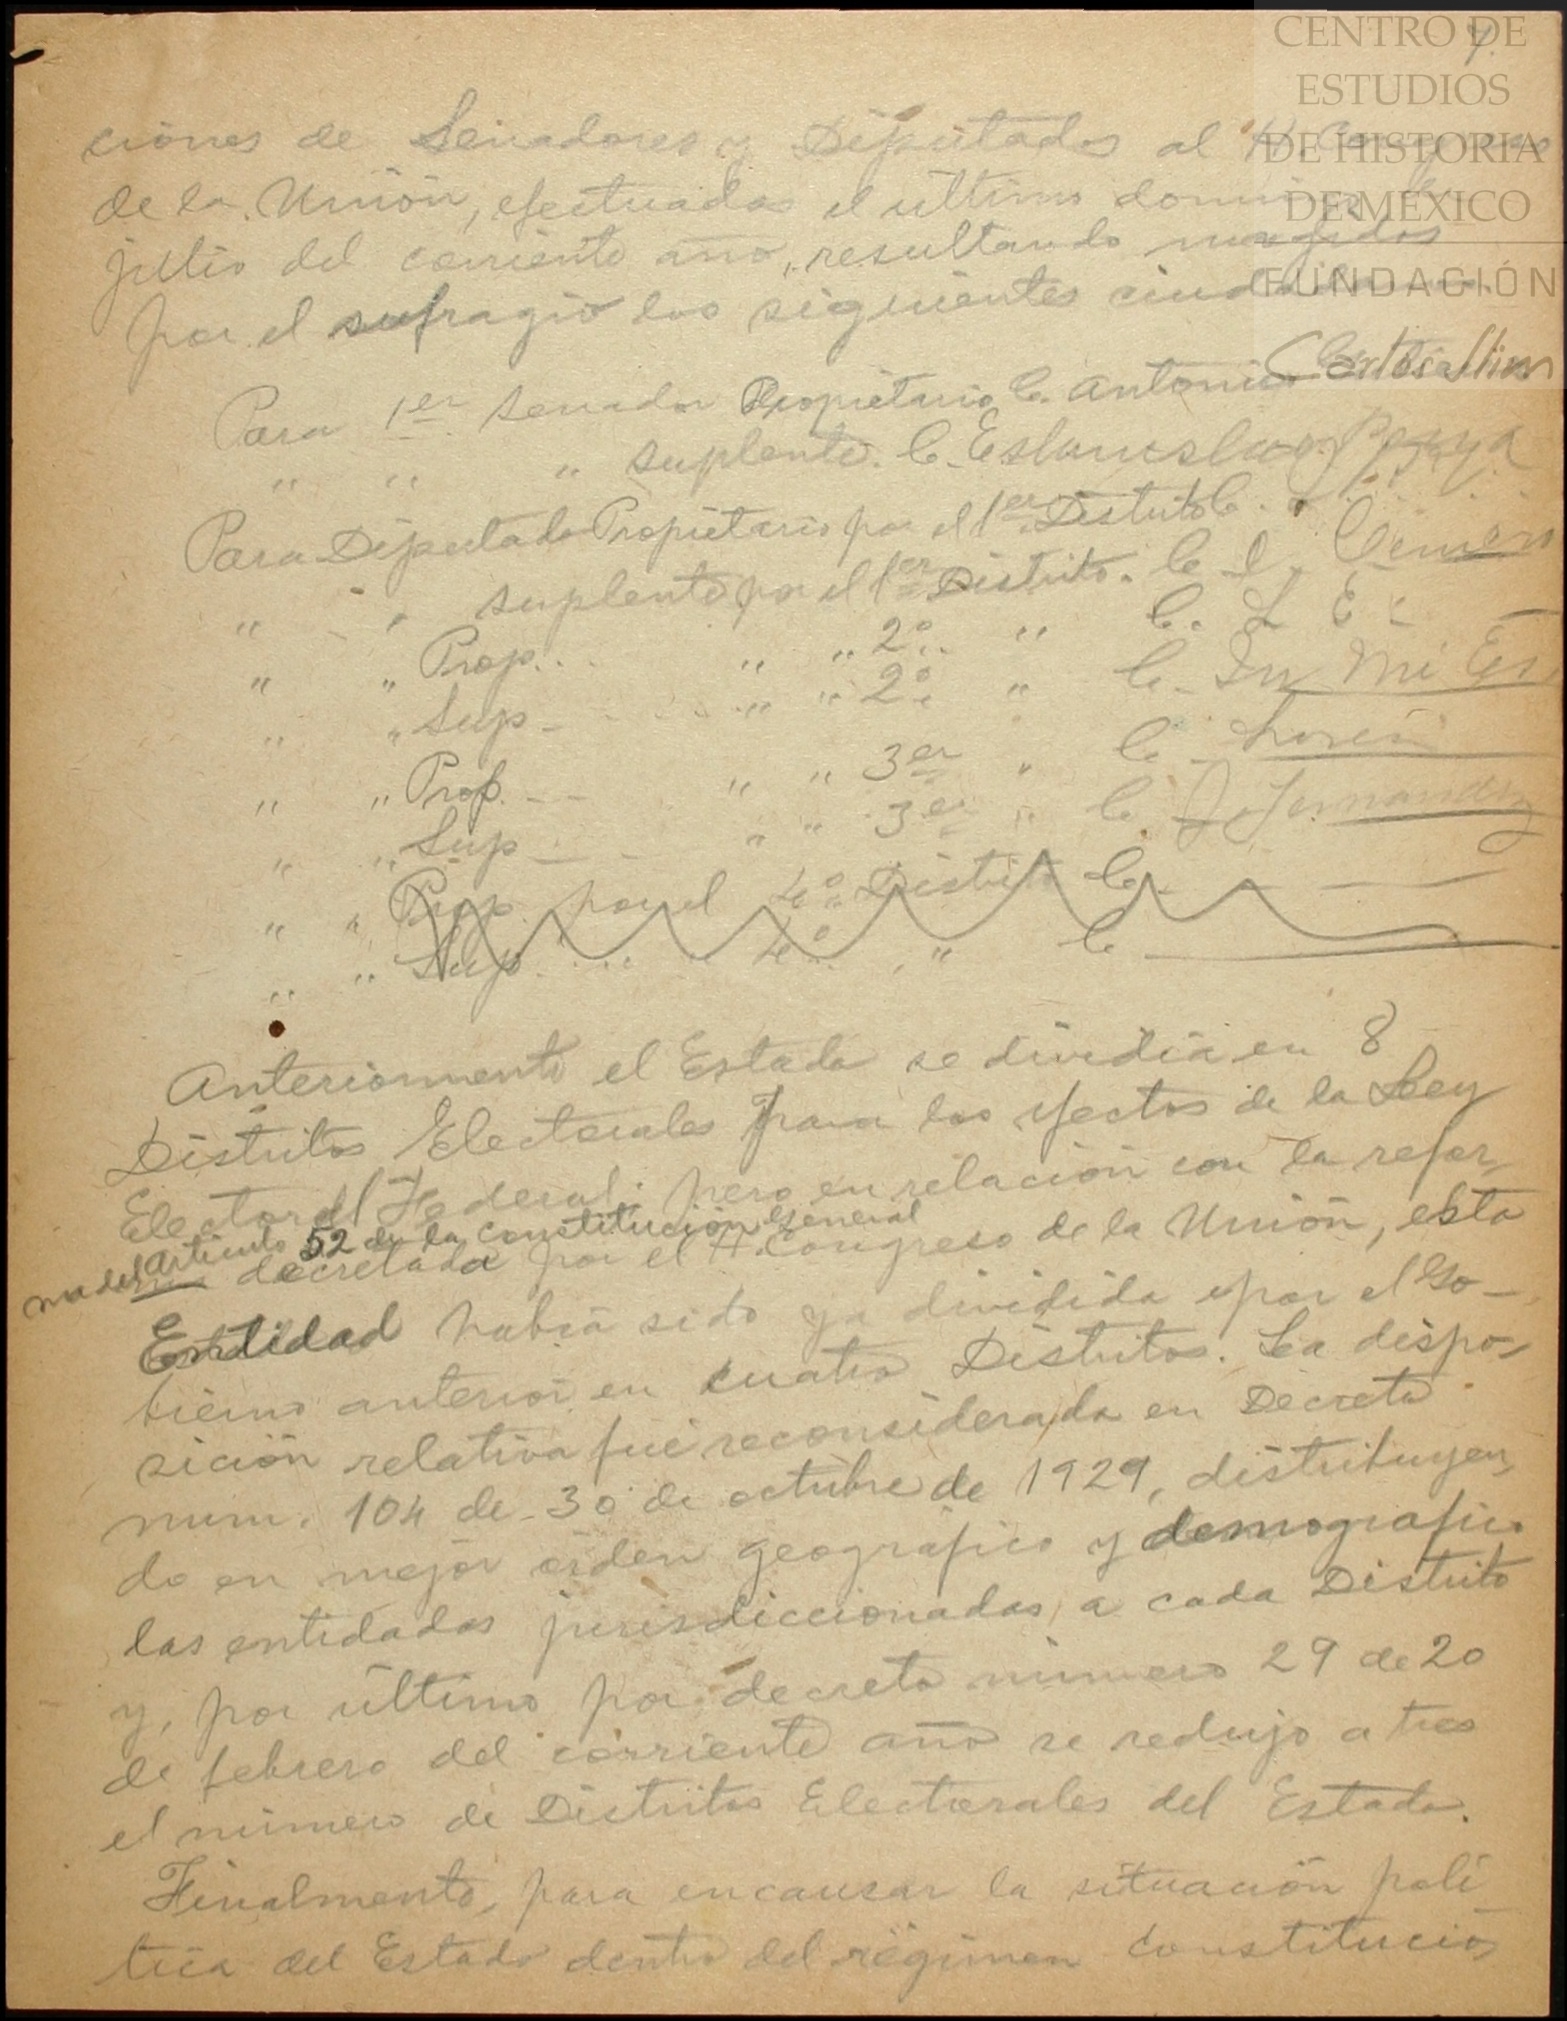 CENTRO DE
ESTUDIOS
DE HISTORIA
DE MÉXICO
FUNDACIÓN
ciones de Senadores y Diputados al H. Congreso
de la Unión, efectuadas el último domingo de
julio del corriente año, resultando ungidos
por el sufragio los siguientes ciudadanos
Para 1er Senador Propietario, C. Antonio
" " " suplente. C. Estanislao
Para Diputado Propietario por el 1er Distrito C.
" " suplente por el 1er Distrito. C.
" " Prop. . . " " 2º " C. L E
" " Sup " " 2º " C.
" " Prop. " " 3er " C.
" " Sup " " 3er " C. J Fernandez
" " Prop. por el 4º Distrito C.
" " Sup. . . . . " 4º " C
Anteriormente el Estado se dividia en 8
Distritos Electorales para los efectos de la Ley
Electoral Federal; pero en relación con la refor-
ma del Articulo 52 de la Constitución General
decretada por el H. Congreso de la Unión, esta
Entidad habia sido ya dividida por el Go-
bierno anterior en cuatro Distritos. La dispo-
sición relativa fué reconsiderada en Decreto
num. 104 de 30 de octubre de 1929, distribuyen-
do en mejor orden geográfico y demografico
las entidades jurisdiccionadas a cada Distrito
y, por último por decreto número 29 de 20
de febrero del corriente año se redujo a tres
el número de Distritos Electorales del Estado.
Finalmente, para encausar la situación poli
tica del Estado dentro del régimen constitucio-